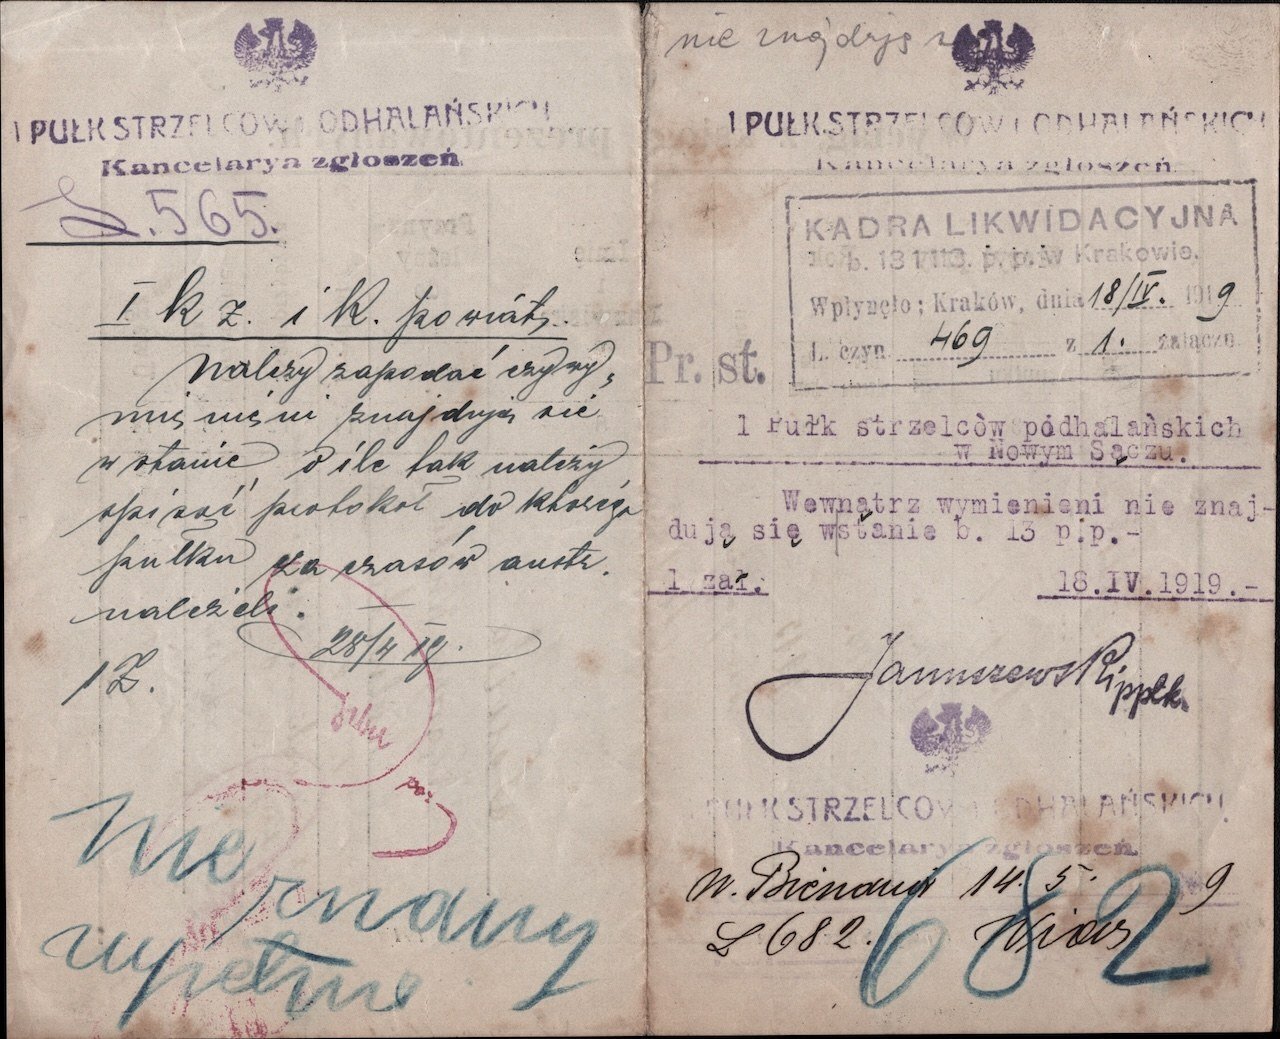 I PUŁK STRZELCÓW PODHALAŃSKICH
Kancelarya zgłoszeń
L. 565.
I k z. i K. powiat.
Należy zapodać czy wy-
mienieni znajdują się
w stanie o ile tak należy
spisać protokół do którego
pułku za czasów austr.
należeli.
28/4 19.
1 Z.
nie znany
wpełnie
nie znajdują
I PUŁK STRZELCÓW PODHALAŃSKICH
Kancelarya zgłoszeń
KADRA LIKWIDACYJNA
b. 13 p. p. w Krakowie.
Wpłynęło; Kraków, dnia 18/IV. 1919
L. czyn. 469 z 1. załączn.
Pr. st.
1 Pułk strzelcòw pódhalańskich
w Nowym Sączu.
Wewnątrz wymienieni nie znaj-
dują się wstanie b. 13 p.p.-
1 zał. 18.IV.1919.-
Januszewski ppłk.
I PUŁK STRZELCÓW PODHALAŃSKICH
Kancelarya zgłoszeń
14. 5. 9
L 682.
682